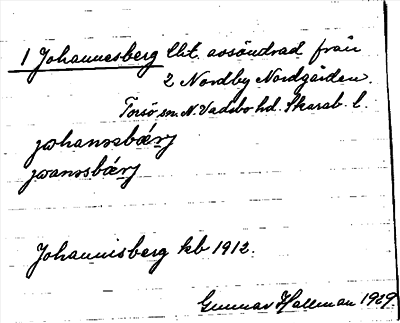 1 Johannesberg lht. avsöndrad från
2 Nordby Nordgården.
Torsö sn. N. Vadsbo hd. Skarab. l.
johansbærj
jxansbærj
Johannisberg kb 1912.
Gunnar Hallman 1929.